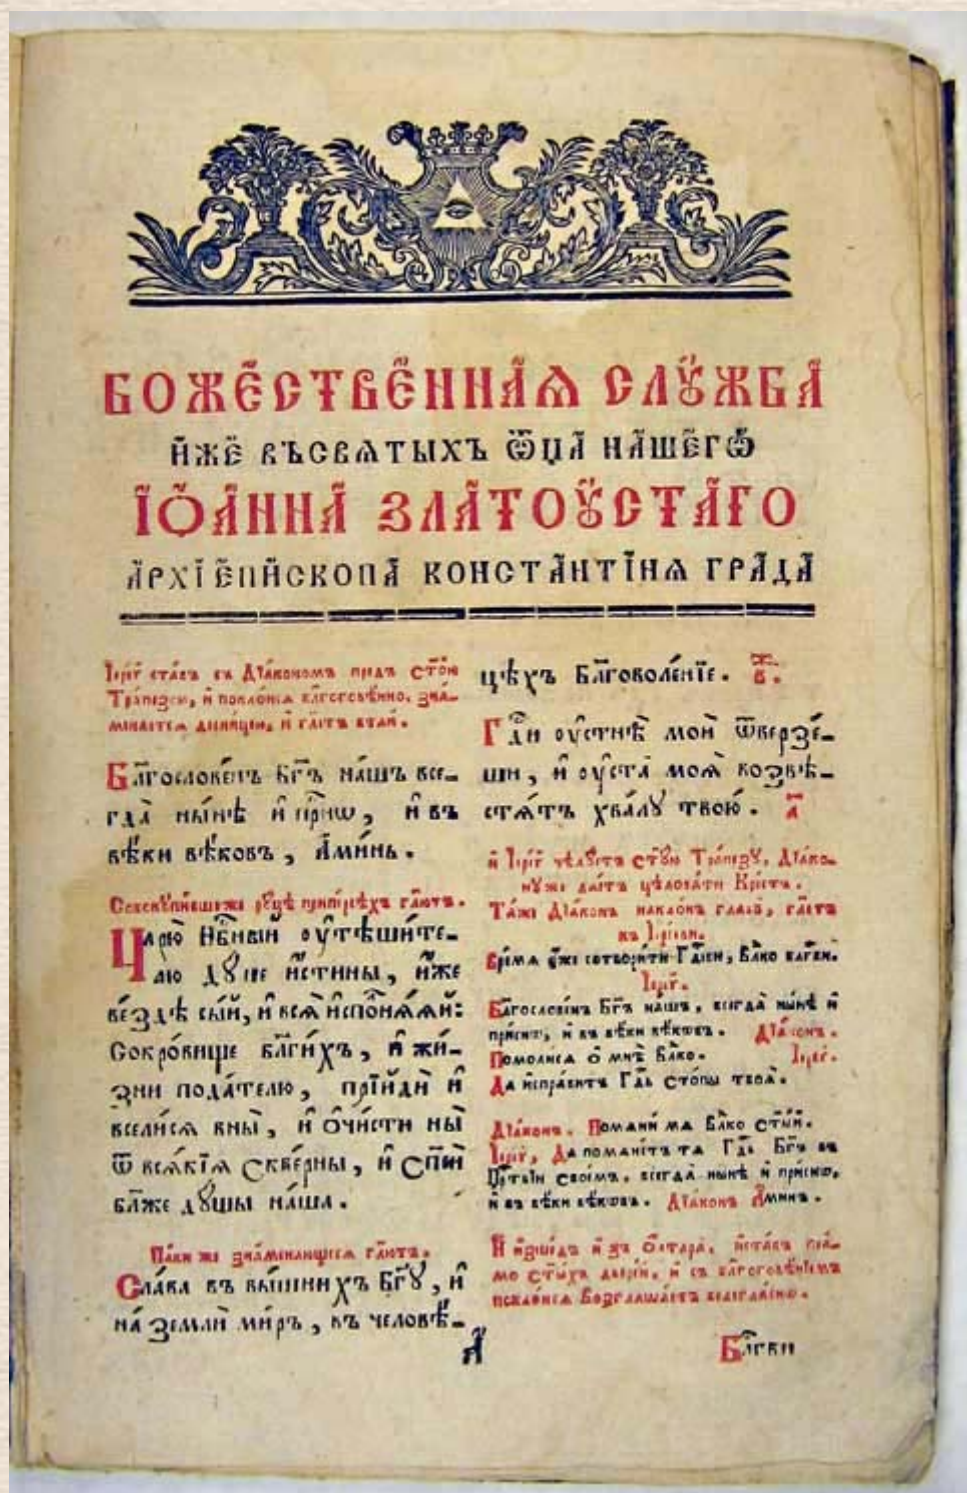 БОЖЕ́СТВЕ́ННАѦ СЛꙊ́ЖБА
И҆́ЖЕ ВЪСВѦТЫХЪ Ѿ҆ЦА НА́ШЕГѠ
І҆ѠА́ННА ЗЛАТОꙊ́СТАГО
А҆РХІЕПИ́СКОПА КОНСТАНТІ́НѦ ГРА́ДА
Іере́й ста́въ съ Дїа́кономъ предъ ст҃о́ю
Тра́пезою, и҆ поклони́сѧ бл҃гогове́йно, зна́-
менаетсѧ десни́цею, и҆ гл҃етъ втай.
Бл҃гослове́нъ Бг҃ъ на́шъ все-
гда̀ ны́нѣ и҆ при́снѡ, и҆ въ
вѣ́ки вѣ́ковъ, А҆ми́нь.
Совокꙋпи́вшеже рꙋ́цѣ при пе́рсѣхъ гл҃ютъ.
Царю̀ Нб҃ный оу҆тѣши́те-
лю дꙋ́ше и҆́стины, и҆́же
ве́здѣ сы́й, и҆ всѧ̀ и҆сполнѧ́ѧй:
Сокро́више бл҃ги́хъ, и҆ жи́-
зни пода́телю, прїйдѝ и҆
всели́сѧ вны̀, и҆ ѻ҆чи́сти ны̀
ѿ всѧ́кїѧ скве́рны, и҆ сп҃сѝ
бл҃же дꙋ́шы на́ша.
Па́ки же зна́менающесѧ гл҃ютъ.
Сла́ва въ вы́шнихъ Бг҃ꙋ, и҆
на́ землѝ ми́ръ, въ человѣ́-
цѣхъ Бл҃говоле́нїе. в҃.
Гд҃и оу҆стнѣ̀ моѝ ѿверзе́-
ши, и҆ оу҆ста̀ моѧ̀ возвѣ-
стѧ́тъ хвалꙋ̀ твою̀. а҃
и҆ Іере́й цѣлꙋ́етъ ст҃ꙋ́ю Тра́пезꙋ, Дїа́ко-
нꙋже дае́тъ цѣлова́ти Кре́стъ.
Та́же Дїа́конъ накло́нъ главꙋ̀, гл҃етъ
къ Іере́ови.
Вре́мѧ оу҆же сотвори́ти Гд҃еви, Вл҃ко бл҃гви.
Іере́й.
Бл҃гослове́нъ Бг҃ъ на́шъ, всегда̀ ны́нѣ и҆
при́снѡ, и҆ въ вѣ́ки вѣ́кѡвъ. Дїа́конъ.
Помоли́сѧ ѻ҆ мнѣ̀ Вл҃ко. Іере́й.
Да и҆спра́витъ Гд҃ь сто́пы твоѧ̀.
Дїа́конъ. Помѧнѝ мѧ Вл҃ко ст҃ы́й.
Іере́й, Да помѧне́тъ тѧ Гд҃ь Бг҃ъ въ
Цр҃твїи свое́мъ, всегда̀ ны́нѣ и҆ при́снѡ,
и҆ въ вѣ́ки вѣ́кѡвъ. Дїа́конъ А҆ми́нь.
И҆ и҆зше́дъ и҆зъ ѻ҆лтарѧ̀, и҆ ста́въ прѧ́-
мо ст҃ы́хъ двере́й, и҆ съ бл҃гогове́нїемъ
поклони́сѧ Возглаша́етъ велегла́снѡ.
А҃
Бл҃гви